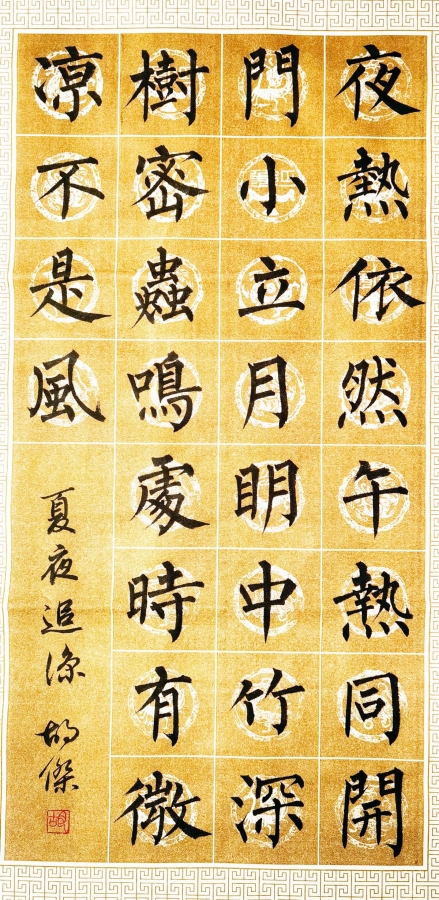 夜熱依然午熱同開
門小立月明中竹深
樹密蟲鳴處時有微
凉不是風
夏夜追涼 胡傑